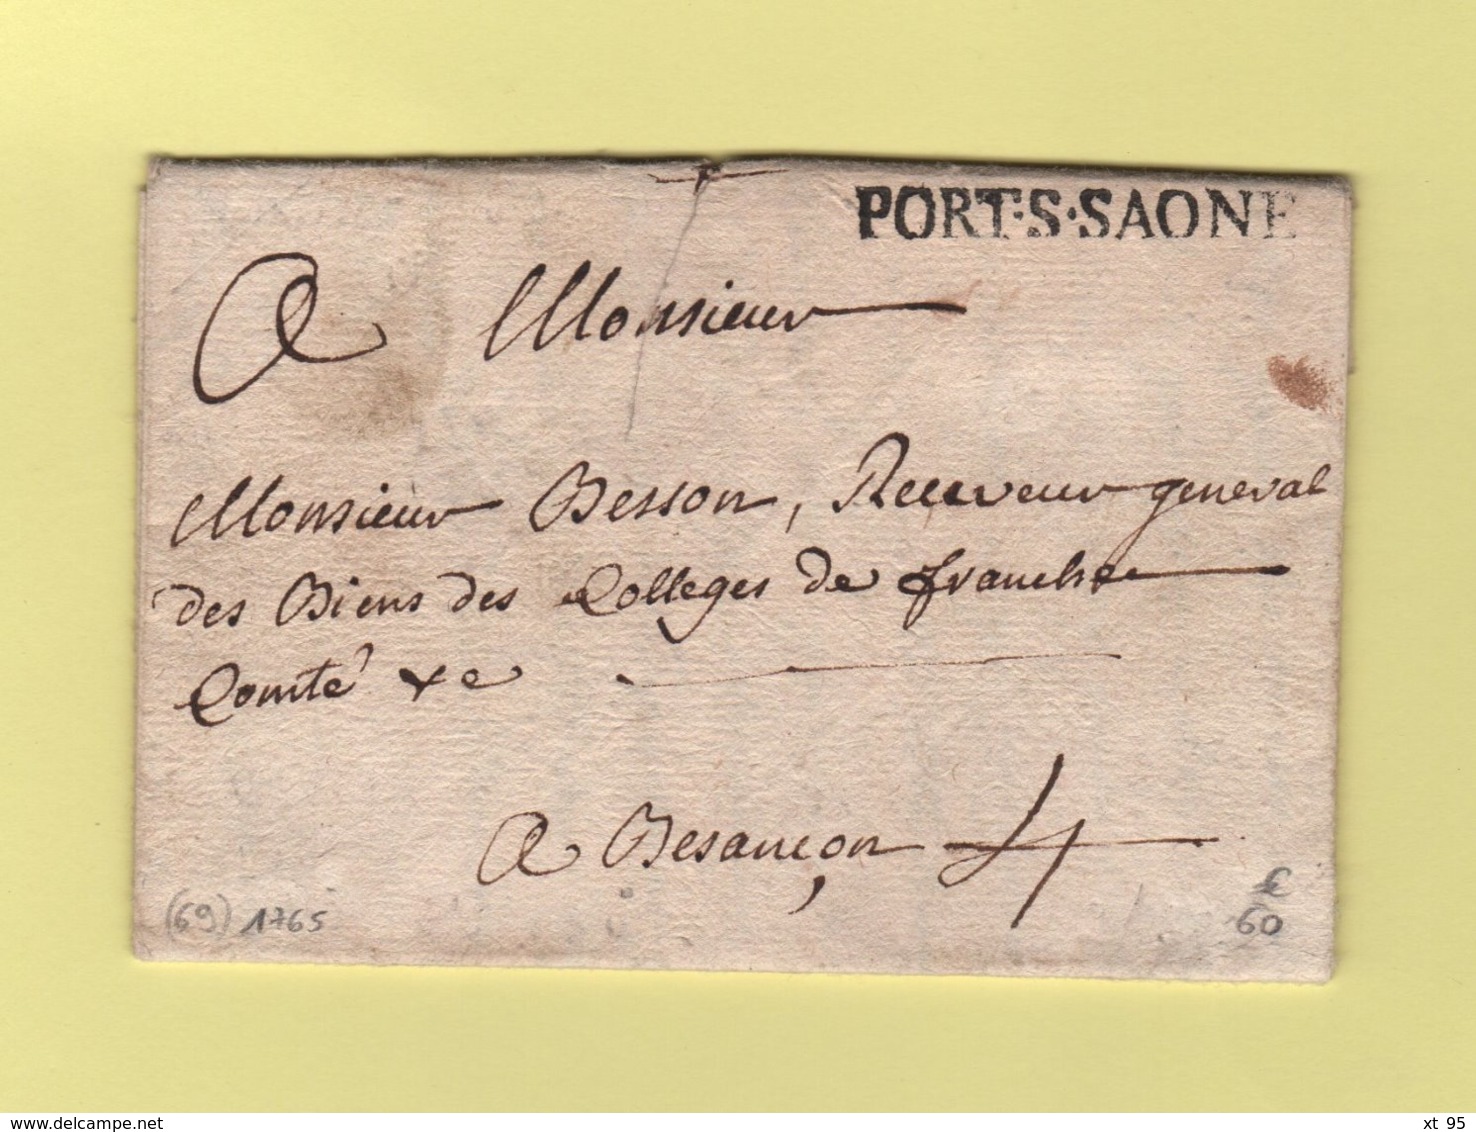 PORT·S·SAONE
A Monsieur
Monsieur Besson, Receveur general
des Biens des Colleges de franche
Comté &e
A Besançon 4
(69) 1765
€
60
delcampe.net
xt 95